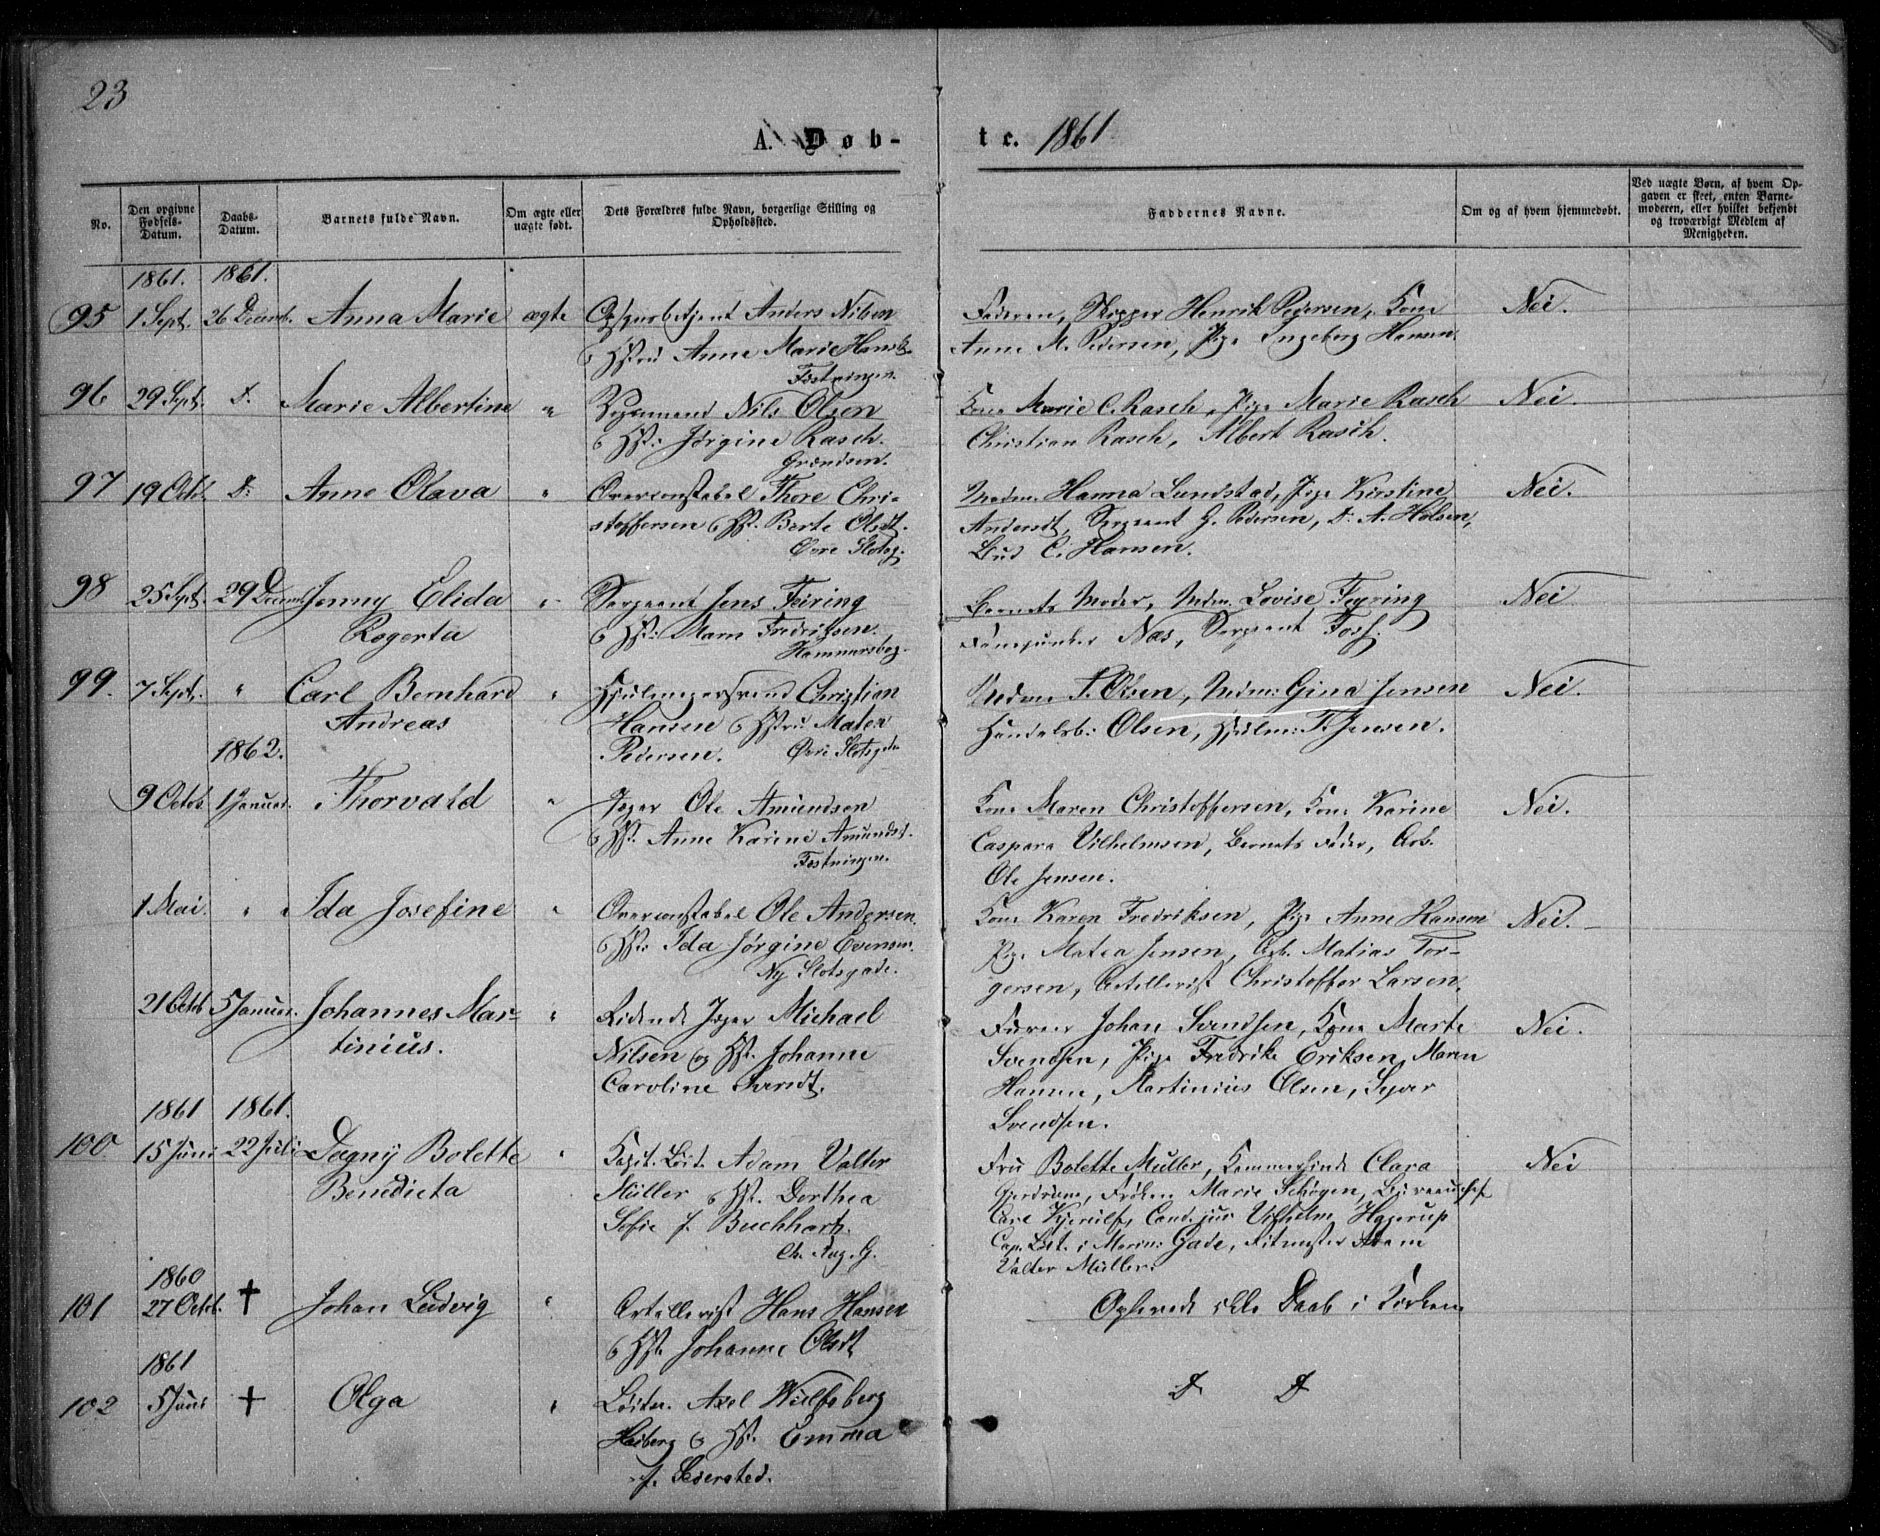 23
A. Døb-
te. 1861
No.
Den opgivne Fødsels-Datum.
Daabs-Datum.
Barnets fulde Navn.
Om ægte eller uægte født.
Dets Forældres fulde Navn, borgerlige Stilling og Opholdssted.
Faddernes Navne.
Om og af hvem hjemmedøbt.
Ved uægte Børn, af hvem Op-
gaven er skeet, enten Barne-
moderen, eller hvilket bekjendt
og troværdigt Medlem af
Menigheden.
1861. 1861.
95 1 Sept. 26 Decemb. Anna Marie ægte Opsynsbetjent Anders Nilsen
& Hstru Anne Marie Hansd.
Fæstningen.
Faderen, Skipper Henrik Pedersen, Kone
Anne M. Pedersen, Pige Ingeborg Hansen.
Nei.
96 29 Sept. D. Marie Albertine " Nils Olsen
& Hst: Jørgine Rasch.
Grændsen.
Kone Marie C. Rasch, Pige Marie Rasch
Christian Rasch, Albert Rasch.
Nei
97 19 Octb. D: Anne Olava " Overconstabel Thore Chri-
stoffersen & Hst. Berte Olsdt.
Øvre Slotsg.
Madm. Hanna Lundstad, Pige Kirstine
Andersdt, Sergeant G. Pedersen, D. A. Holsen,
Bud C. Hansen.
Nei.
98 25 Sept. 29 Decemb. Jenny Elida
Rogerta
" Sergeant Jens Feiring
& Hst: Maren Fredriksen.
Hammersbog.
Barnets Moder, Mdm. Lovise Feyring
Fanejunker Næs, Sergeant Foss.
Nei
99. 7 Sept. " Carl Bernhard
Andreas
" Hjulmagersvend Christian
Hansen & Hstru Matea
Pedersen. Øvre Slotsgade
Madm F. Olsen, Mdm: Gina Jensen
Handelsb: Olsen, Hjulm: F. Jensen.
Nei.
1862.
9 Octob. 1 Januar. Thorvald " Jæger Ole Amundsen
& Hst. Anne Karine Amundsd.
Fæstningen.
Kone Maren Christoffersen, Kone Karine
Caspara Vilhelmsen, Barnets Fader, Arb.
Ole Jensen.
Nei.
1 Mai. " " Ida Josefine " Overconstabel Ole Andersen
& Hst: Ida Jørgine Evensen.
Ny Slotsgade.
Kone Karen Fredriksen, Pige Anne Hansen
Pige Matea Jensen, Arb. Matias Tor-
gersen, Artellerist Christoffer Larsen.
Nei.
21 Octob 5 Januar. Johannes Mar-
tinius.
" Ridende Jæger Michael
Nilsen og Hst. Johanne
Caroline
Johan Svendsen, Kone Marte
Svendsen, Pige Fredrike Eriksen, Maren
Hansen, Martinius Olsen, Syver
Svendsen.
Nei.
1861 1861.
100 15 Juni 22 Juli Dagny Bolette
Benedicta
" Kapt. Løit. Adam Valter
Müller & Hst. Dorthea
Sofie f. Buchholtz.
Ch. Aug. G.
Fru Bolette Müller, Clara
Gjerdrum, Frøken Marie Schøgen, Bureauchef
Carl Kjerulf, Cand. jur Vilhelm Hagerup
Cap. Løit. i Marine Gade, Adam
Valter Müller.
Nei
1860
101 27 Octob. † Johan Ludvig " Artellerist Hans Hansen
& Hst. Johanne Olsdt
Opnaaede ikke Daab i Kirken
1861
102 5 Juni † Olga " Løitn. Axel Wulfsberg
Heiberg & Hst. Emma
f. Sedersted.
D D